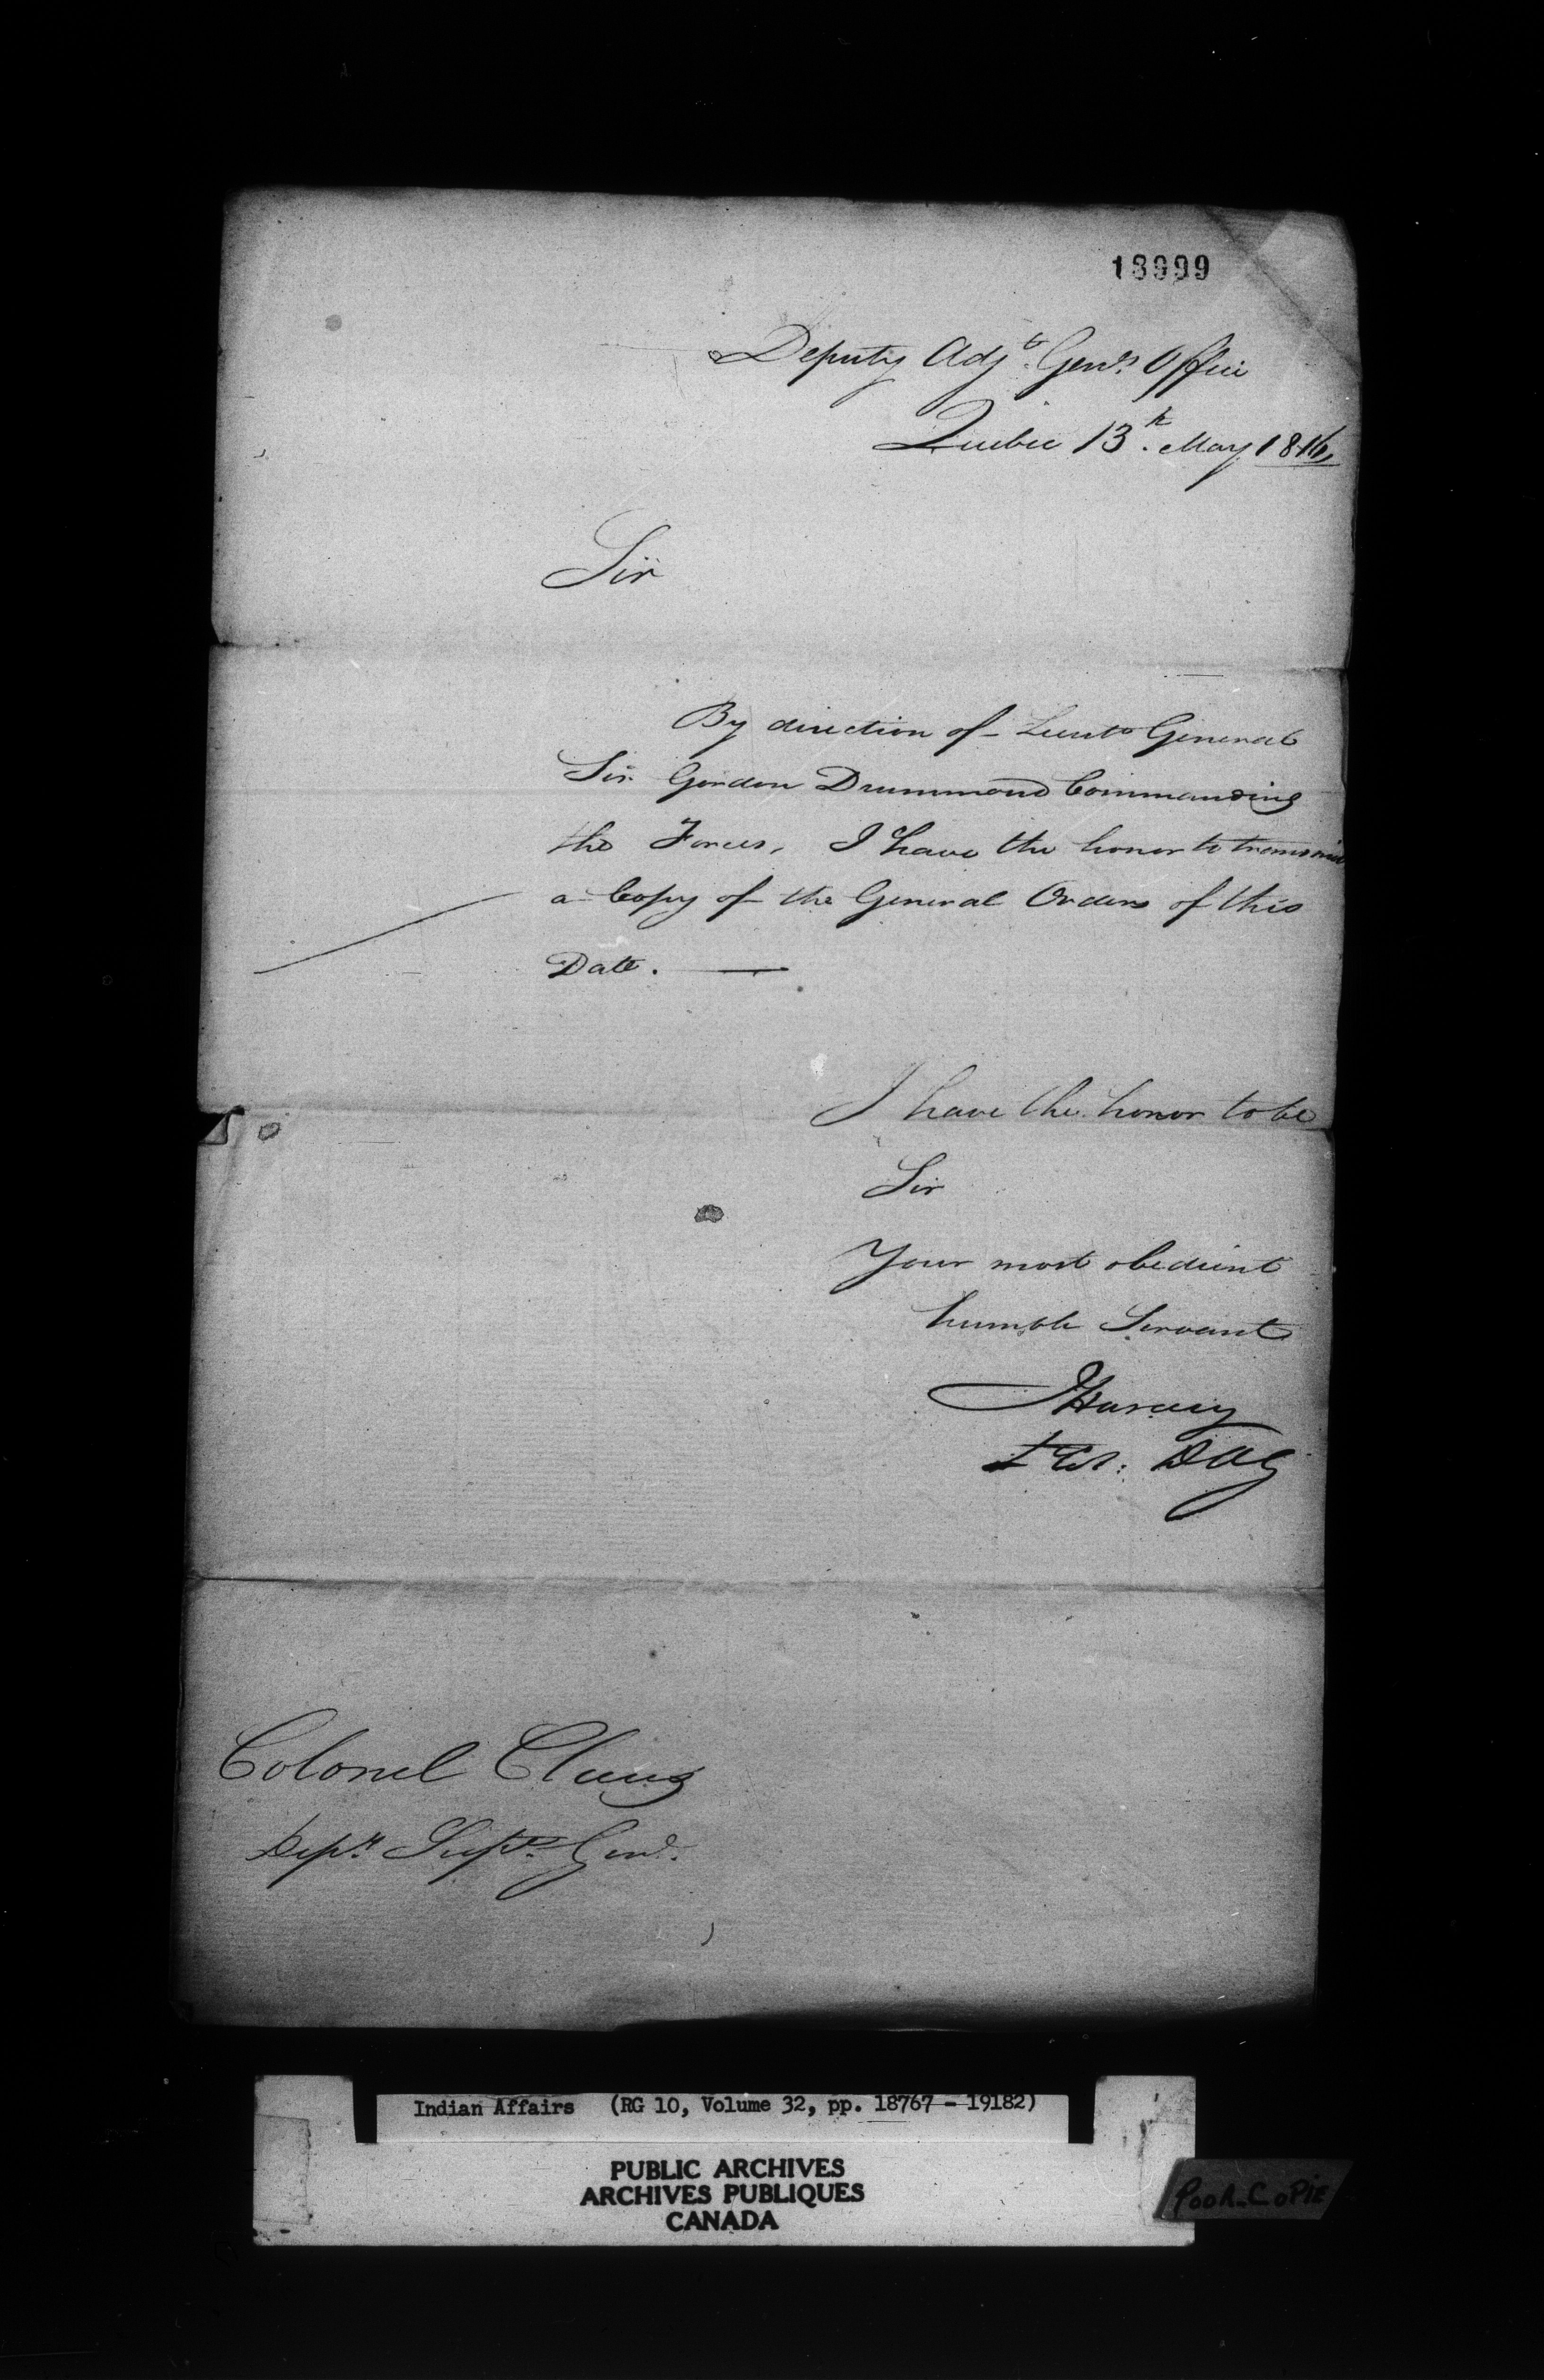 18999
Deputy Adjt. Genl's Office
Quebec 13th. May 1816,
Sir
By direction of Lieut General
Sir Gordon Drummond Commanding
the Forces, I have the honor to transmit
a Copy of the General Orders of this
Date.
I have the honor to be
Sir
Your most obedient
humble Servant
JHarvey
Lt Col: DAG
Colonel Claus
Depy. Supt. Genl.
Indian Affairs (RG 10, Volume 32, pp. 18767 - 19182)
PUBLIC ARCHIVES
ARCHIVES PUBLIQUES
CANADA
POOR COPIE